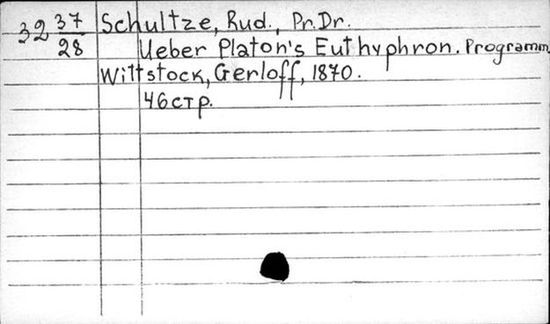 32 37/28 Schultze, Rud., Pr.Dr.
Ueber Platon's Euthyphron. Programm
Wittstock, Gerloff, 1870.
46стр.